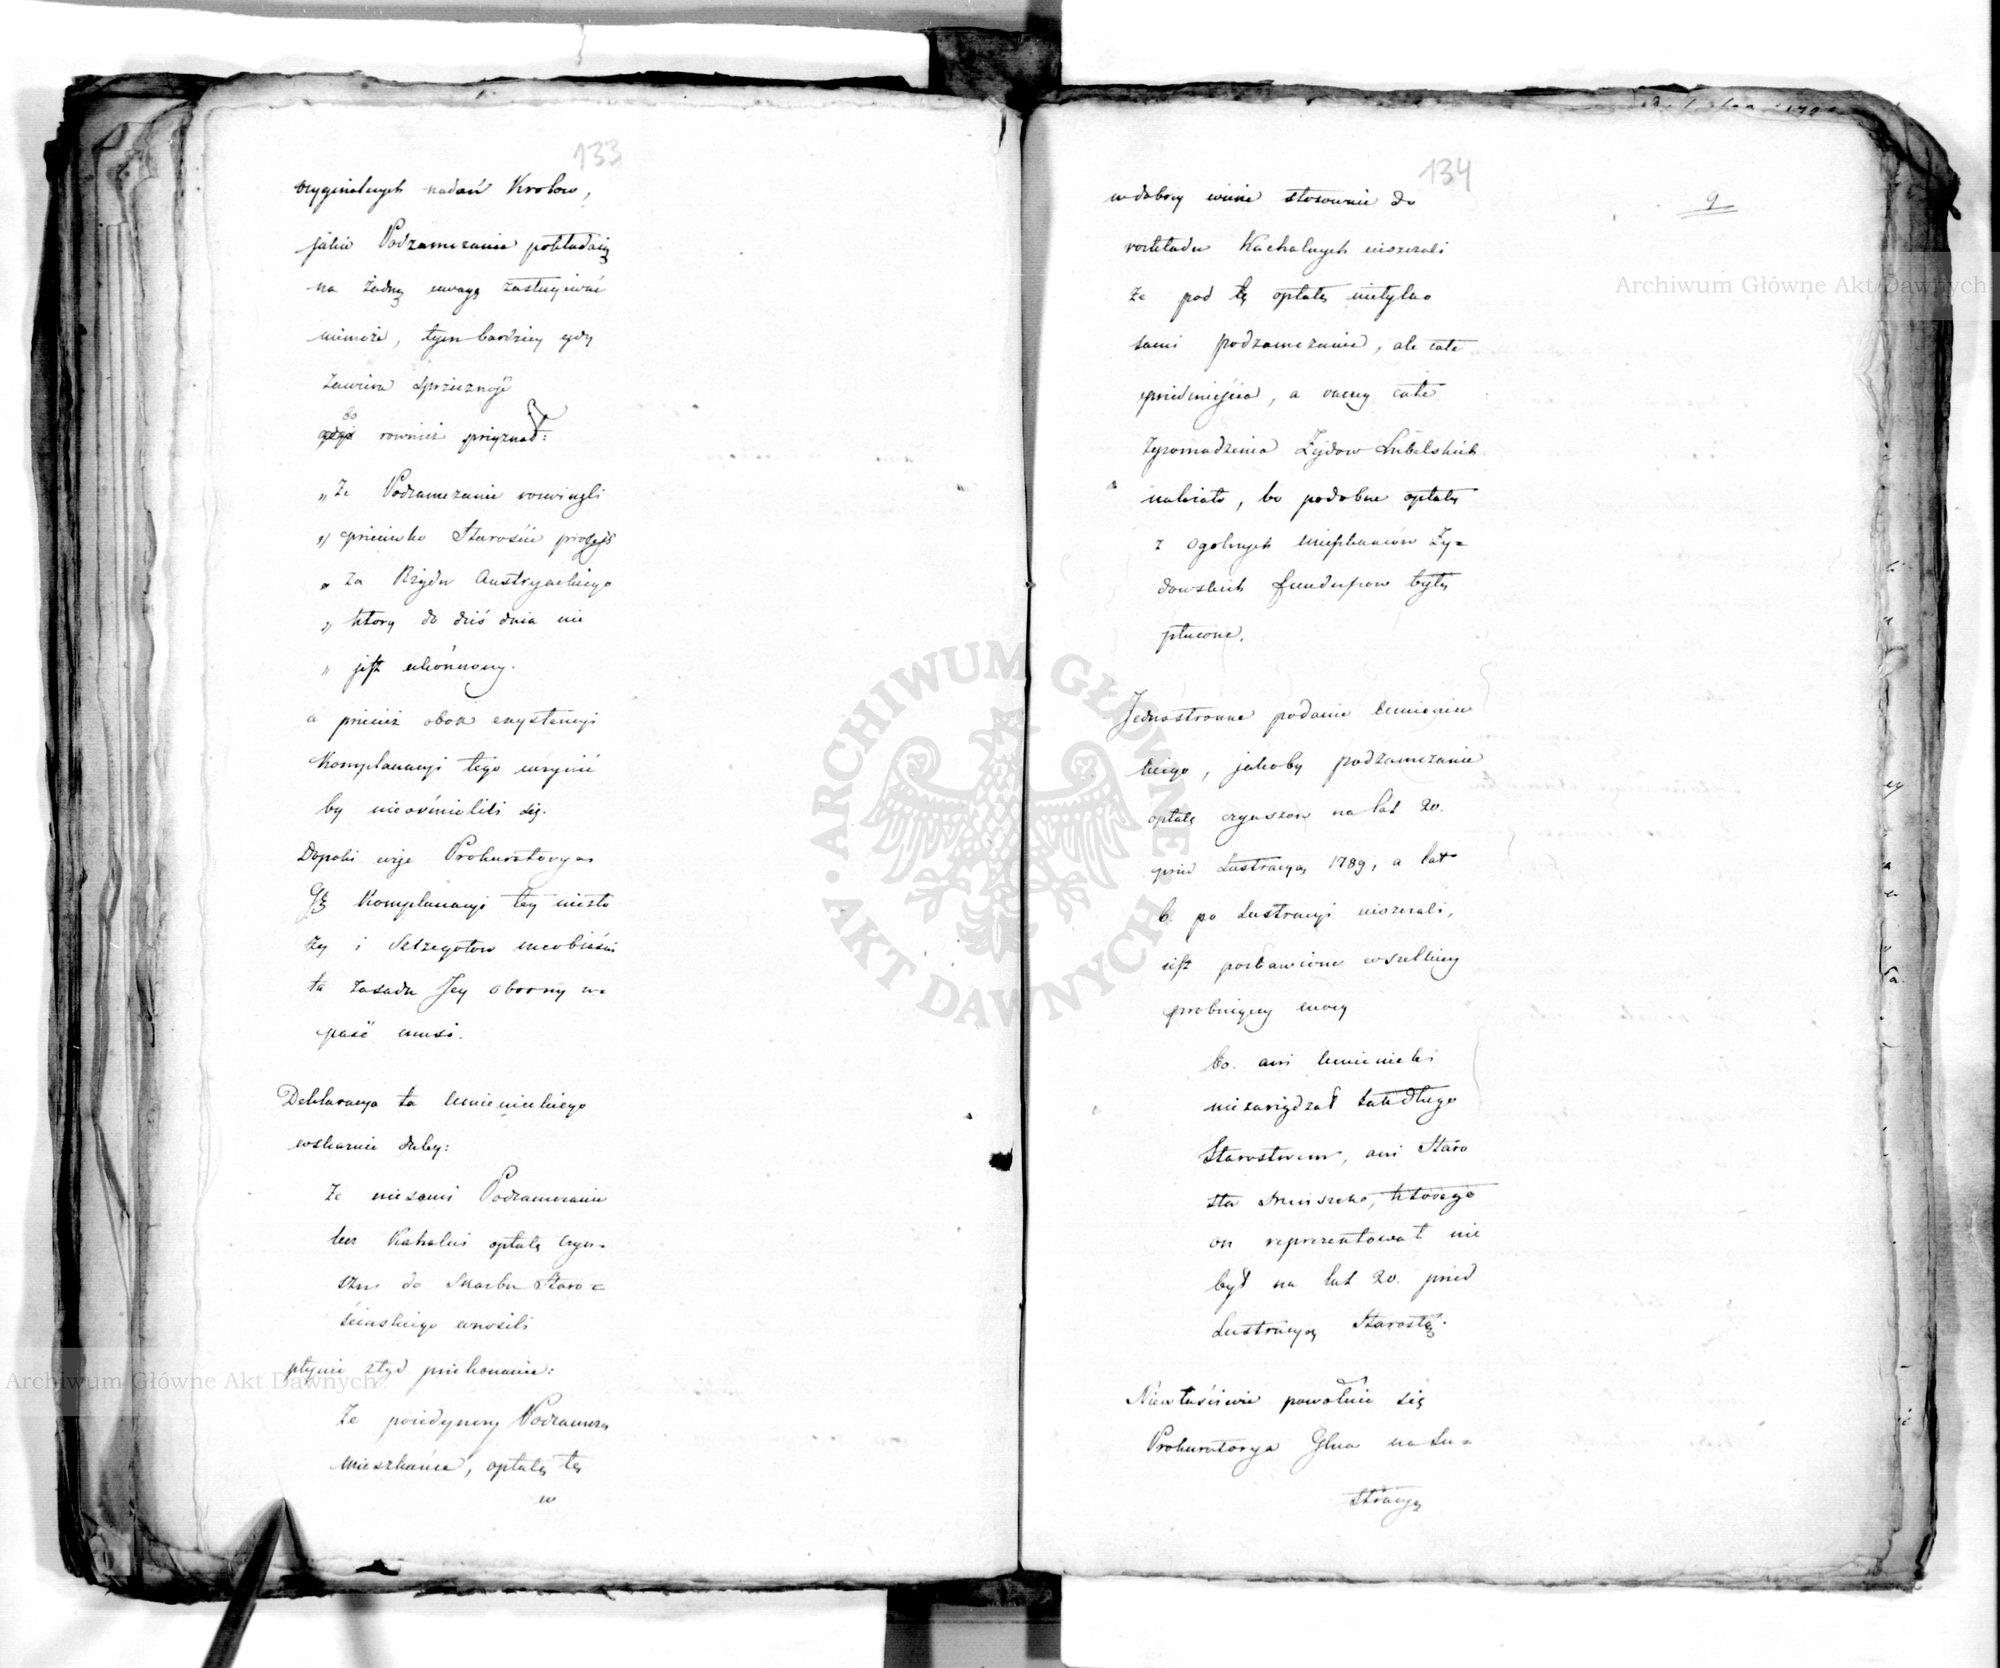 133
oryginalnych nadań Krolow,
jakie Podzamczanie pokładaią
na żadną uwagę zasługiwać
niemoże, tym bardziey gdy
zawiera sprzeczność
bo
również przyznał:
„Że Podzamczanie rozwinęli
„ przeciwko Staroście process
„ za Rządu Austryackiego
„ ktory do dziś dnia nie
„ jest ukończony.
a przecież obok exystencyi
Komplanacyi tego uczynić
by nieośmielili się.
Dopoki więc Prokuratorya
Komplanacyi tey niezło
ży i Szczegołow nieobiaśni
ta zasada Jey obrony u=
paść musi.
Deklaracya ta
wskazuie daley:
że niesami Podzamczanie
lecz Kahalni opłatę czyn=
szu do Skarbu Staro=
ścinskiego wnosili
płynie ztąd przekonanie:
Że poiedynczy Podzamcza
mieszkańce, opłatę tę
w
134
9
w dobrey wierze stosownie do
rozkładu Kachalnych uiszczali
że pod tę opłatę nietylko
sami podzamczanie, ale całe
przedmieście, a raczey całe
Zgromadzenia Żydow Lubelskich
należało, bo podobne opłaty
z ogolnych mieszkańców Ży=
dowskich funduszow były
płacone.
Jednostronne podanie
kiego, jakoby podzamczanie
opłatę czynszow na lat 20.
przed Lustracyą 1789, a lat
6. po Lustracyi uiszczali,
iest pozbawione wszelkiey
probuiącey mocy
bo. ani
niezarządzał tak długo
Starostwem, ani Staro
sta Mniszek, ktorego
on reprezentował nie
był na lat 20. przed
Lustracyą Starostą.
Niewłaściwie powołuie się
Prokuratorya Glna na Lu=
stracyą
Archiwum Główne Akt Dawnych
Archiwum Główne Akt Dawnych
ARCHIWUM GŁÓWNE AKT DAWNYCH